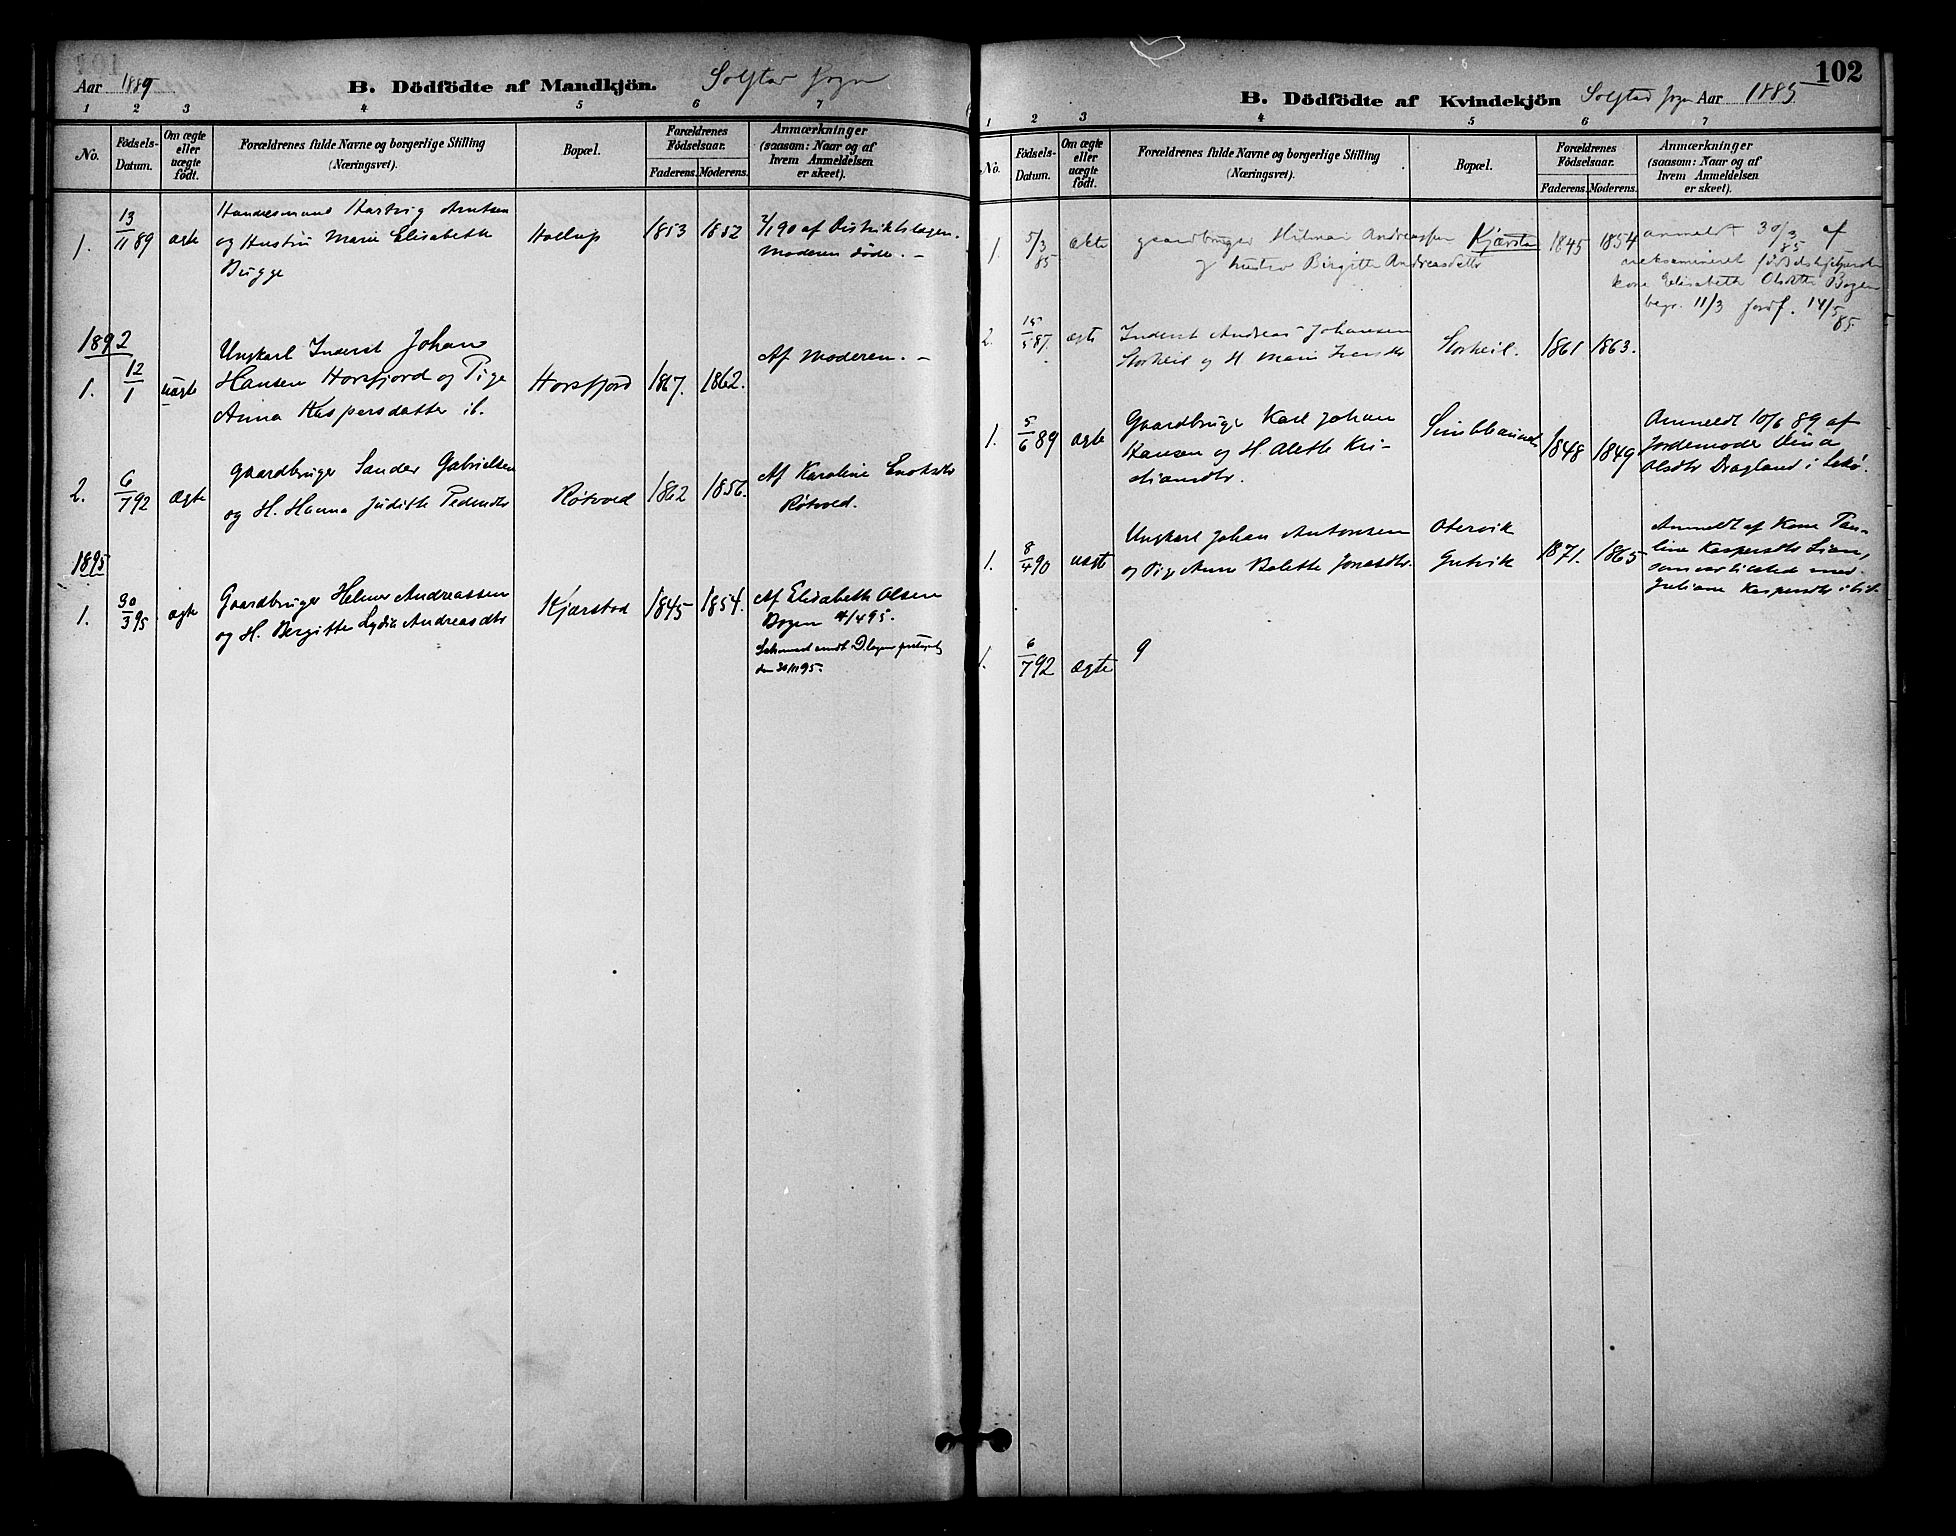 102
Aar 1889 B. Dödfödte af Mandkjön. Solstad Sogn
1 2 3 4 5 6 7
No. Födsels-Datum. Om ægte eller uægte födt. Forældrenes fulde Navne og borgerlige Stilling (Næringsvei). Bopæl. Forældrenes Födselsaar. Faderens. Moderens. Anmærkninger (saasom: Naar og af hvem Anmeldelsen er skeet).
Handelsmand Hartvig Arntsen
1. 13/11 89 ægte og Hustru Marie Elisabeth Hollup 1853 1852 2/1 90 af Distriktslægen.
Bugge Moderen döde. -
1892
Ungkarl Inderst Johan Af Moderen. -
1. 12/1 uægte Hansen Horsfjord og Pige Horsfjord 1867. 1862.
Anna Kaspersdatter ib.
Gaardbruger Sander Gabrielsen Af Karoline Enoksdtr
2. 6/7 92 Ægte og H. Hanna Judith Pedersdtr Røtvold 1862 1856. Røtvold.
1895
1. 30/3 95 ægte Gaardbruger Helmer Andreassen Kjærstad 1845 1854. Af Elisabeth Olsen
og H. Bergitte Lydia Andreasdtr Bogen 4/4 95.
den 30/11 95.
B. Dödfödte af Kvindekjön Solstad Sogn Aar 1885
1 2 3 4 5 6 7
No. Födsels-Datum. Om ægte eller uægte födt. Forældrenes fulde Navne og borgerlige Stilling (Næringsvei). Bopæl. Forældrenes Fødselsaar. Faderens. Moderens. Anmærkninger (saasom: Naar og af hvem Anmeldelsen er skeet).
1. 5/3 85 ækte gaardbruger Hilmar Andreassen Kjærstad 1845 1854 anmeldt 30/3 85 af
og hustru Birgitte Andreasdatter ueksamineret fødselshjelperske
kone Elisabeth Olsdtr Bogen
begr. 11/3 jordf. 14/5 85.
2. 15/5 87. ægte Inderst Andreas Johansen
Storheil og H. Marie Storheil. 1861 1863.
1. 5/6 89 ægte Gaardbruger Karl Johan 1848 1849 Anmeldt 10/6 89 af
Hansen og H. Alette Kri- Jordemoder Dina
stiansdtr. Olsdtr Dragland i Lekø.
Ungkarl Johan Antonsen Otervik Anmeldt af Kone Pau-
1. 8/4 90 uægte og Pige Anne Bolette Jonasdtr. Gutvik 1871. 1865 line Kaspersdtr Lian,
Juliane Kaspersdtr
1. 6/7 92 Ægte 9